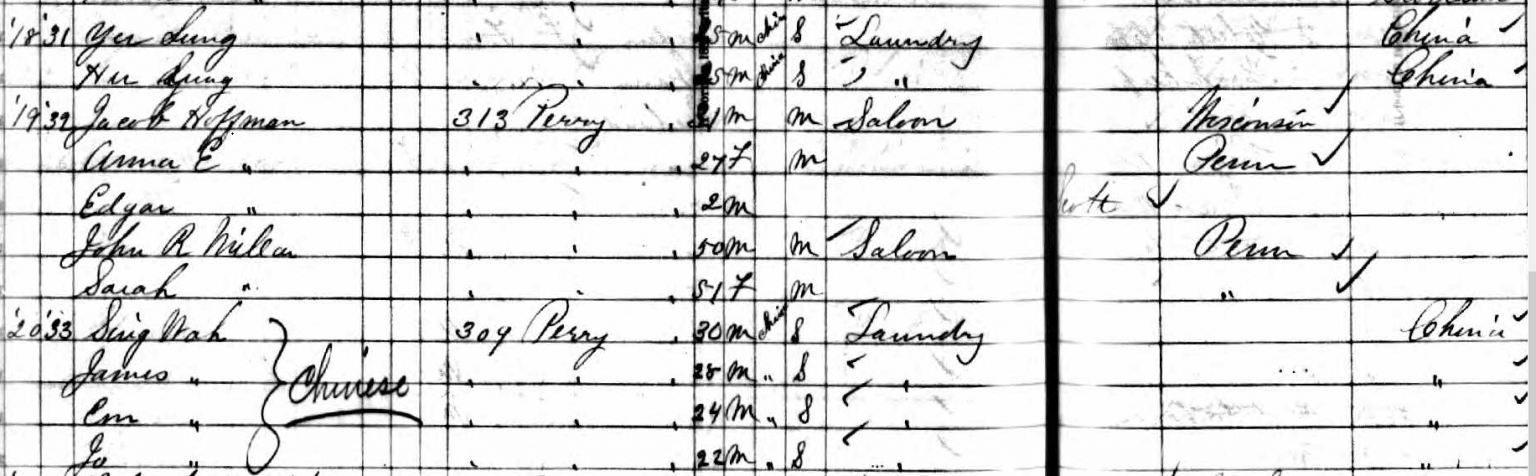 18 31 Yee Sung " " " 5 m chin S Laundry China
Hu Sung " " " 5 m chin S " " China
19 32 Jacob Hoffman 313 Perry " 31 m m Saloon Wisconsin
Anna E " " " " 27 F m Penn
Edgar " " " " 2 m Scott
John R Millar " " " 50 m m Saloon Penn
Sarah " " " " 51 F m "
20 33 Sing Wah 309 Perry " 30 m chin S Laundry China
James " Chinese " " " 28 m " S " "
Em " " " " 24 m " S " "
Jo " " " " 22 m " S " "